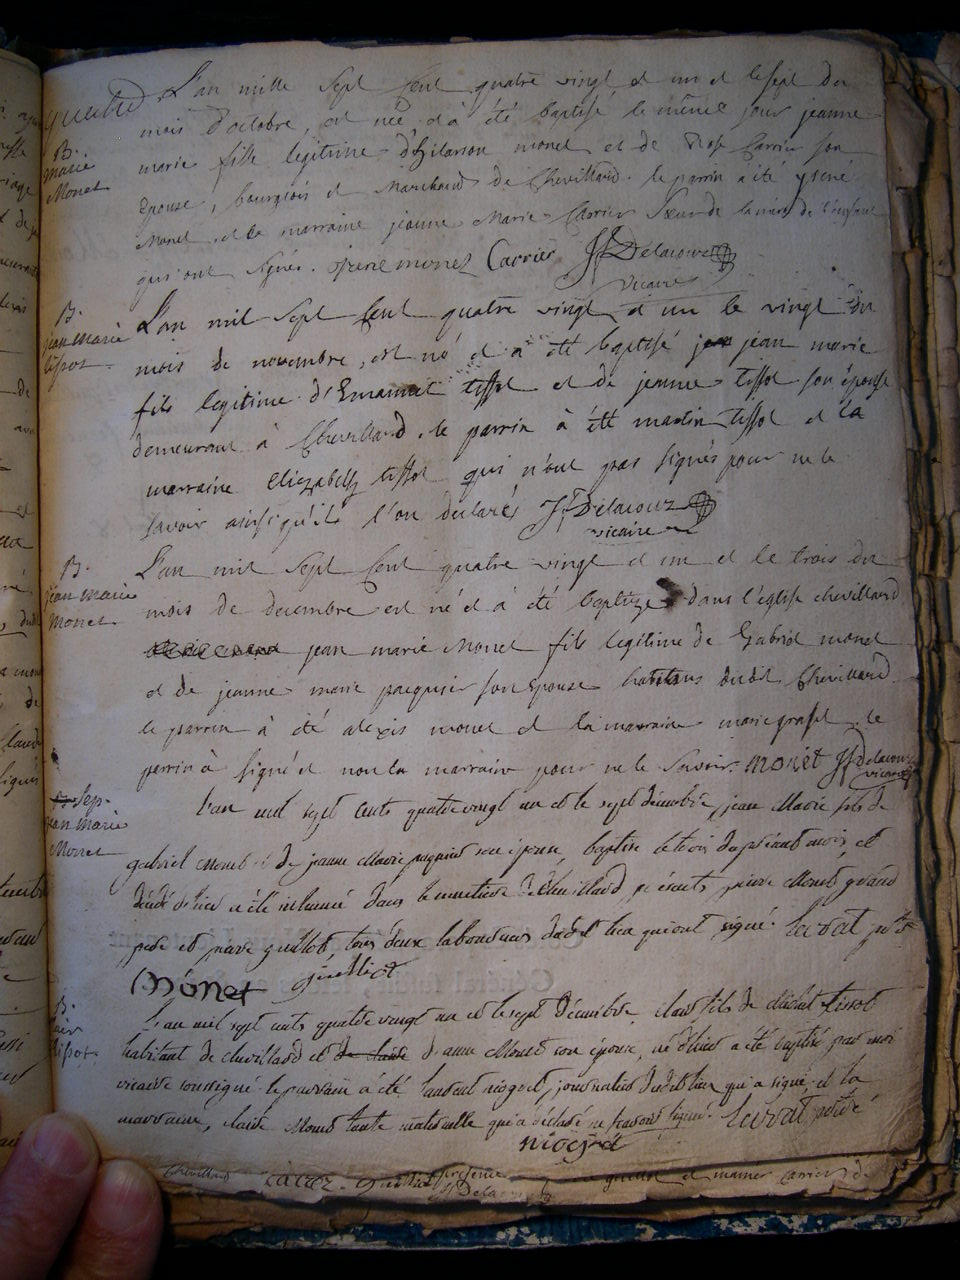 L'an mille Sept Cent quatre vingt et un et le sept du
mois d'octobre, est née et à été baptisé le même jour jeanne
B.
marie
Monet
marie fille legitime d'hilarion monet et de Rose Carrier son
Epouse, bourgeois et Marchand de Chevillard. le parrin a été
Monet et la marraine jeanne Marie Carrier Sœur de la mère de l'enfant
qui ont signés. monet Carrier Delacour
vicaire
B.
jean marie
tissot
L'an mil Sept Cent quatre vingt et un le vingt du
mois de novembre, est né et a été baptisé jean marie
fils legitime d'Emanuel tissot et de jeanne tissot son épouse
demeurant à Chevillard. le parrin à été martin tissot et la
marraine tissot qui n'ont pas signés pour ne le
savoir ainsi qu'ils l'on declarés Delacour
vicaire
B.
jean marie
Monet
L'an mil Sept Cent quatre vingt et un et le trois du
mois de decembre est né et à été baptizé dans l'église chevillard
jean marie Monet fils legitime de Gabriel monet
et de jeanne marie paquier son epouse habitans dudit Chevillard
le parrin à été alexis monet et la marraine marie le
parrin à signé et non la marraine pour ne le Savoir. monet Delacour
vicaire
Sep.
jean marie
Monet
L'an mil sept cents quatre vingt un et le sept décembre, jean Marie fils de
gabriel Monet et de jeanne Marie paquier son épouse, baptisé le trois du présent mois, et
décédé d'hier a été inhumé dans le cimetière de Chevillard présents pierre Monet grand
pere et pierre guilliot tous deux laboureurs dudit lieu qui ont signé.
monet guilliot
B.
tissot
L'an mil sept cents quatre vingt un et le sept décembre, claude fils de Michel tissot
habitant de chevillard et d'anne Monet son épouse, né d'hier a été baptisé par moi
vicaire soussigné le parrain a été niogret, journalier dudit lieu qui a signé, et la
marraine, claire Monet tante maternelle qui a déclaré ne savoir signer.
niogret
Chevillard presence guilliot et mamer carrier de